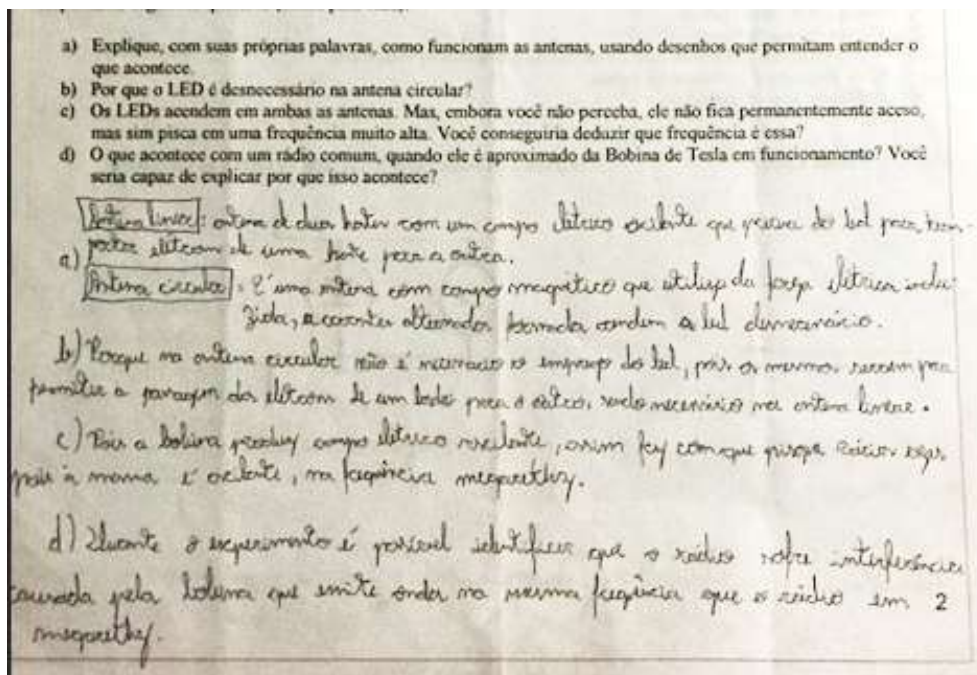 a) Explique, com suas próprias palavras, como funcionam as antenas, usando desenhos que permitam entender o
que acontece.
b) Por que o LED é desnecessário na antena circular?
c) Os LEDs acendem em ambas as antenas. Mas, embora você não perceba, ele não fica permanentemente aceso,
mas sim pisca em uma frequência muito alta. Você conseguiria deduzir que frequência é essa?
d) O que acontece com um rádio comum, quando ele é aproximado da Bobina de Tesla em funcionamento? Você
seria capaz de explicar por que isso acontece?
Antena linear: antena de duas hastes com um campo elétrico oscilante que precisa do led para
a) de uma haste para a outra.
Antena circular: É uma antena com campo magnético que utiliza da força elétrica indu
zida, a corrente alternada formada
b) Porque na antena circular não é necessário o emprego do led, pois os mesmos servem para
permitir a passagem dos de um lado para o outro, sendo necessário na antena linear.
c) Pois a bobina produz campo elétrico oscilante, assim faz com que pisque
a mesma é oscilante, na frequência
d) Durante o experimento é possível identificar que o rádio sofre interferência
causada pela bobina que emite ondas na mesma frequência que o rádio em 2